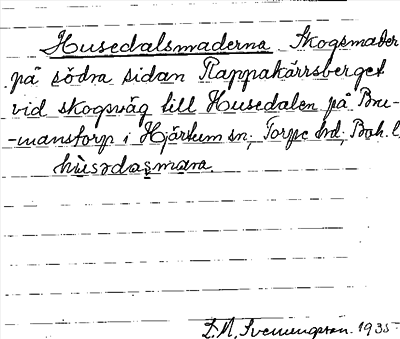 Husedalsmaderna Skogsmader
på södra sidan Rappakärrsberget
vid skogsväg till Husedalen på Bru-
-manstorp i Hjärtum sn, Torpe hd, Boh. l.
husədasmara.
L. M. Svenungsson. 1935